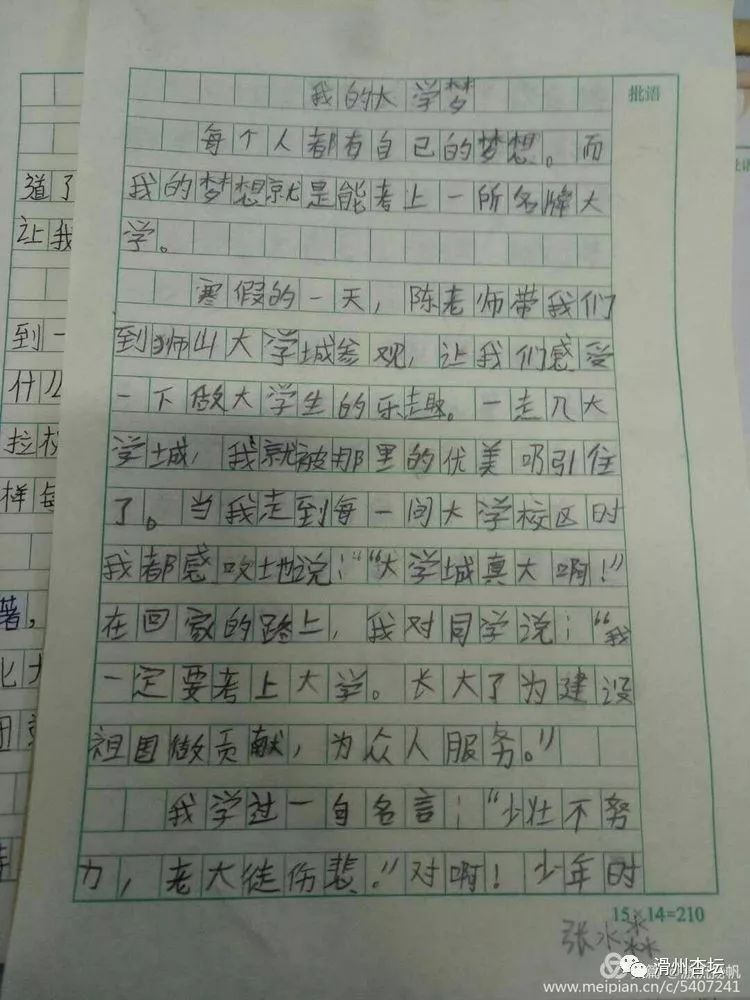 我的大学梦
批语
每个人都有自己的梦想。而
我的梦想就是能考上一所名牌大
学。
寒假的一天，陈老师带我们
到狮山大学城参观，让我们感受
一下做大学生的乐趣。一走几大
学城，我就被那里的优美吸引住
了。当我走到每一间大学校区时
我都感叹地说：“大学城真大啊！”
在回家的路上，我对同学说：“我
一定要考上大学。长大了为建设
祖国做贡献，为众人服务。”
我学过一句名言：“少壮不努
力，老大徒伤悲。”对啊！少年时
15×14=210
张水淼
道了
让我
到一
什么
拉
样每
著，
滑州杏坛
www.meipian.cn/c/5407241